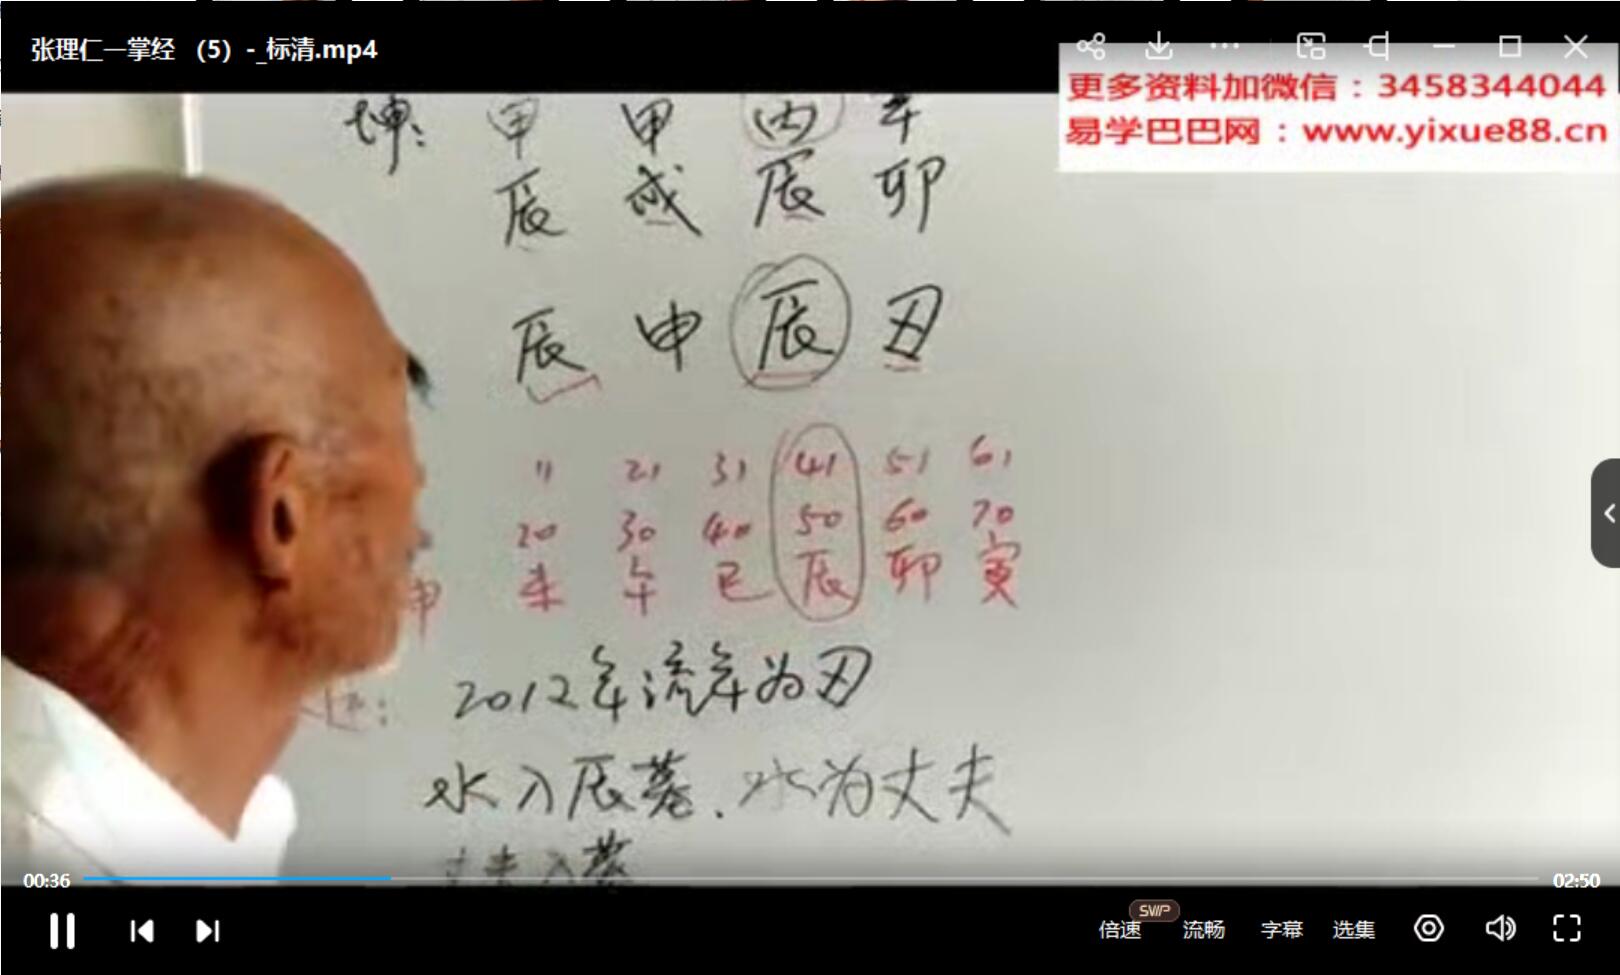 张理仁一掌经 （5）-_标清.mp4
更多资料加微信：3458344044
易学巴巴网：www.yixue88.cn
坤: 甲 甲 丙 辛
辰 戌 辰 卯
辰 申 辰 丑
11 21 31 41 51 61
20 30 40 50 60 70
申 未 午 巳 辰 卯 寅
2012年流年为丑
水入辰墓. 水为丈夫
丈夫入墓
00:36
02:50
SVIP
倍速 流畅 字幕 选集